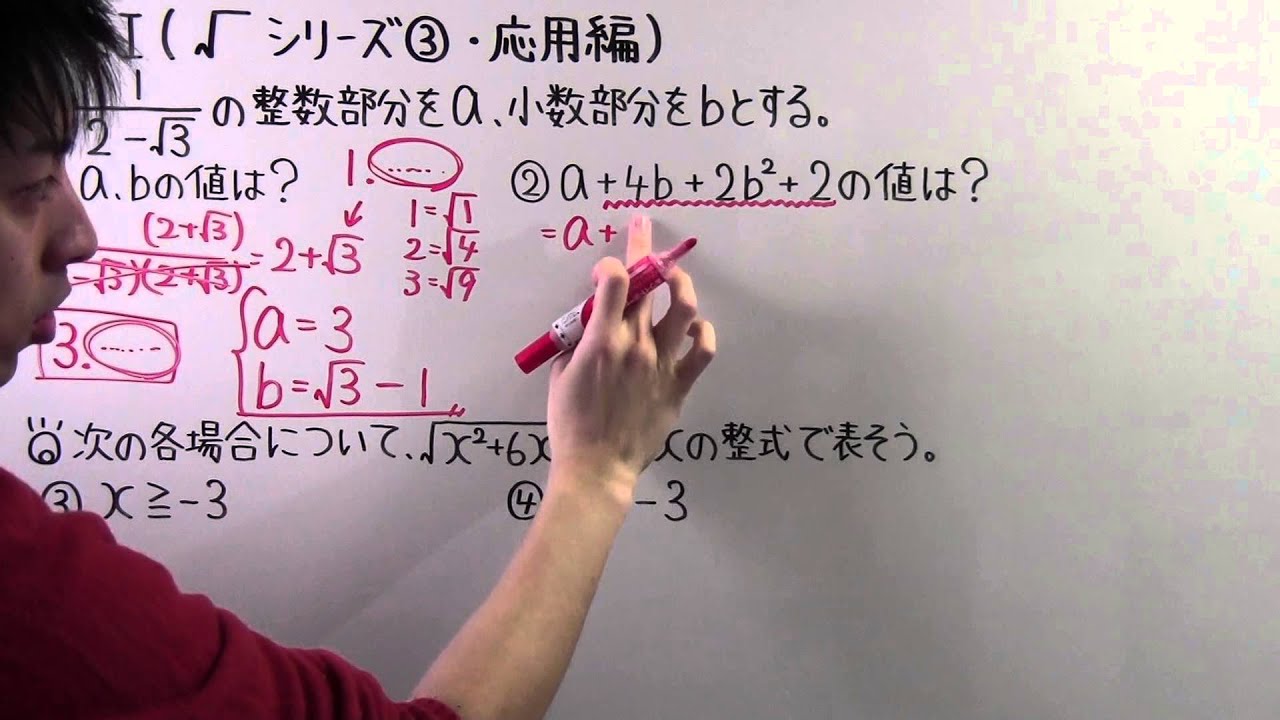 I(√ シリーズ③・応用編)
1/(2-√3) の整数部分をa、小数部分をbとする。
a、bの値は?
1. ......
(2+√3)
-√3)(2+√3) = 2+√3
1=√1
2=√4
3=√9
3. ......
a=3
b=√3-1
② a+4b+2b²+2の値は?
=a+
次の各場合について、√x²+6x xの整式で表そう。
③ x≧-3
④ -3